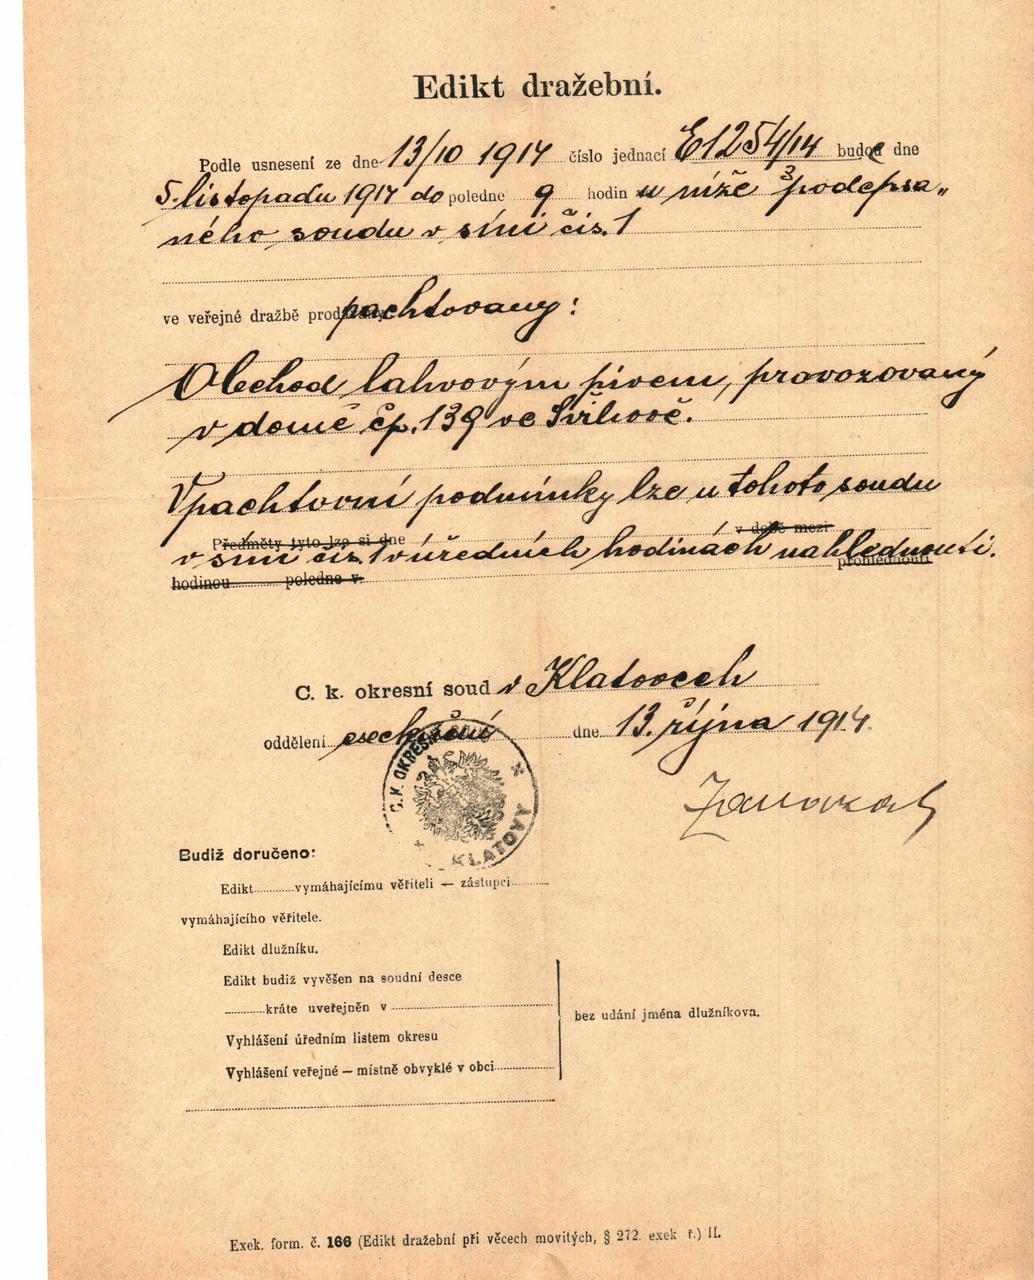 Edikt dražební.
Podle usnesení ze dne 13/10 1914 číslo jednací E1254/14 bude dne
5. listopadu 1914 do poledne 9 hodin u níže podepsa„
ného soudu v síni čís. 1
ve veřejné dražbě pachtovaný:
Obchod lahvovým pivem, provozovaný
v domě čp. 139 ve Švihově.
Vpachtovní podmínky lze u tohoto soudu
Předměty tyto lze si dne v době mezi
v síni čís. 1 v úředních hodinách nahlednouti.
hodinou poledne v prohlédnouti
C. k. okresní soud v Klatovech
oddělení exekuční dne 13. října 1914.
C. K. OKRESNÍ SOUD
KLATOVY
Budiž doručeno:
Edikt vymáhajícímu věřiteli — zástupci
vymáhajícího věřitele.
Edikt dlužníku.
Edikt budiž vyvěšen na soudní desce
kráte uveřejněn v
bez udání jména dlužníkova.
Vyhlášení úředním listem okresu
Vyhlášení veřejné — místně obvyklé v obci
Exek. form. č. 166 (Edikt dražební při věcech movitých, § 272. exek ř.) II.